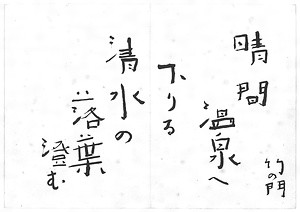 晴間
温泉へ
下りる
清水の
落葉
澄む
竹の門